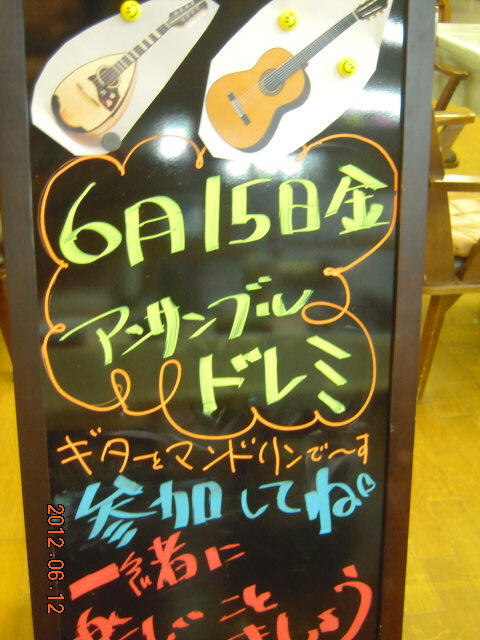 6月15日金
アンサンブル
ドレミ
ギターとマンドリンで〜す
参加してね
一緒に
2012.06.12